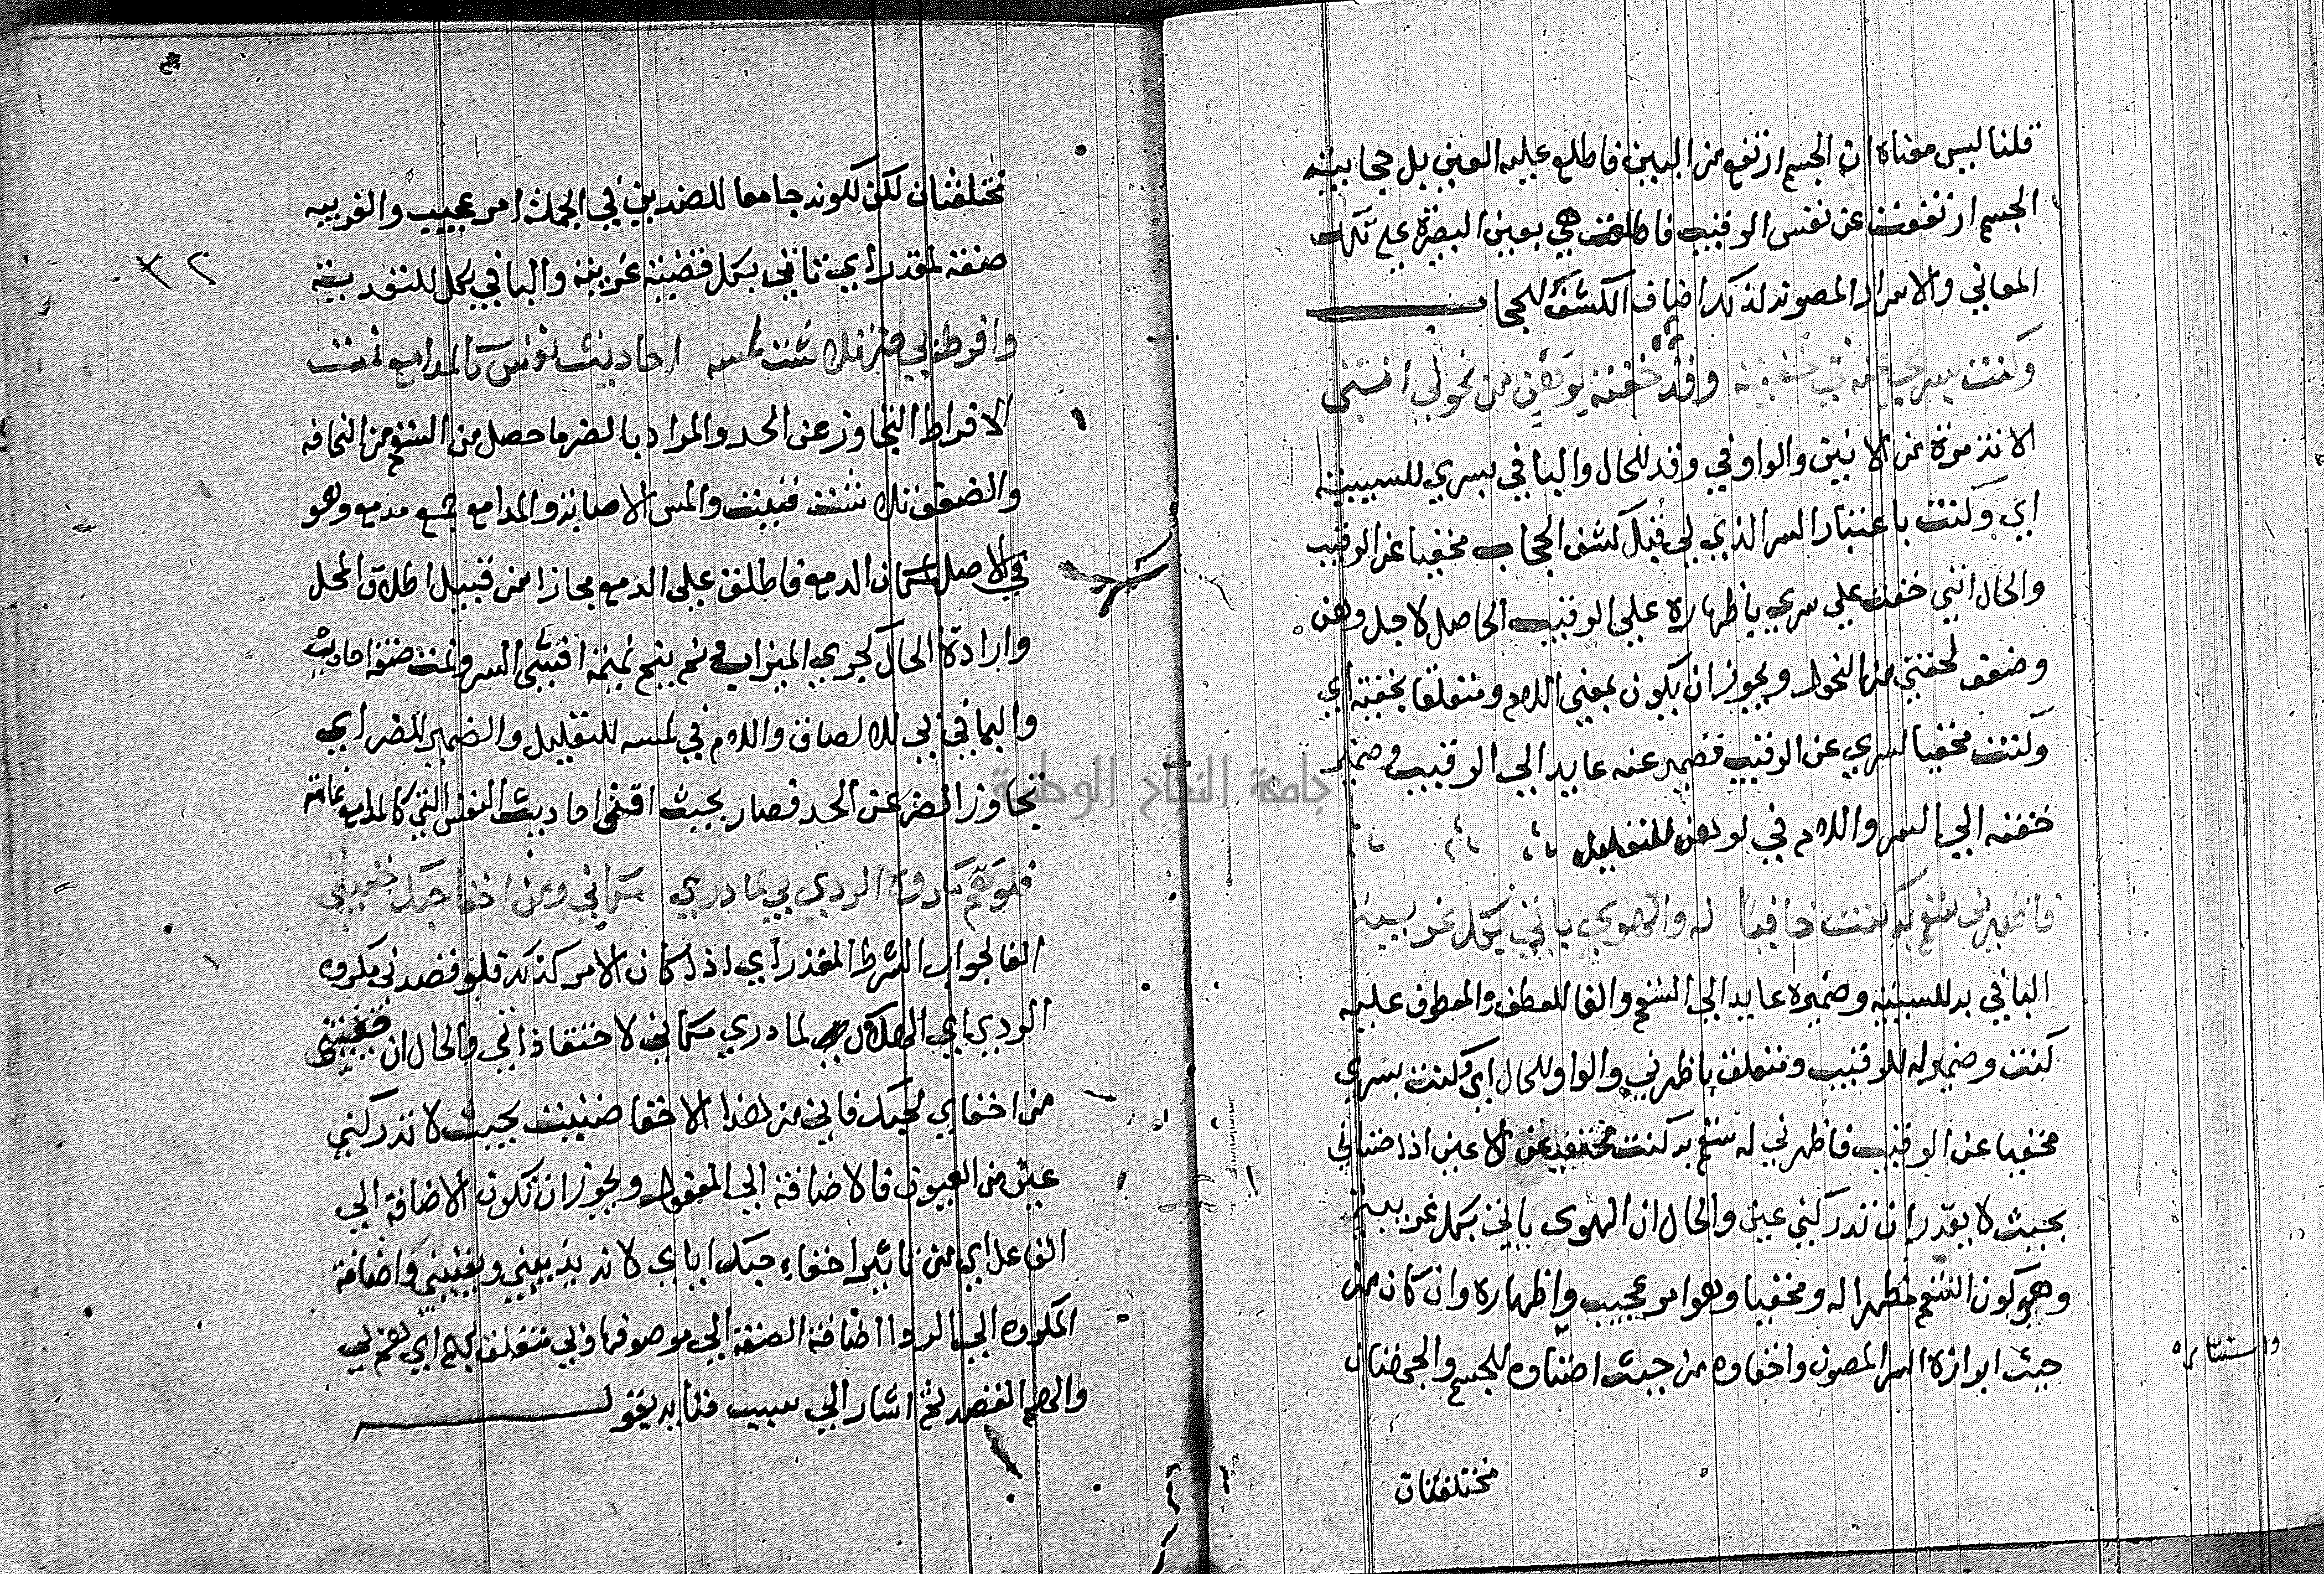 قلنا ليس معناه ان الجسم ارتفع من البين فاطلع عليه العين بل حجابية
الجسم ارتفعت عن نفس الرقيب فاطلعت هي بعين البصيرة على تلك
المعاني والاسرار المصونة لذلك اضاف الكشف للحجاب
وكنت بسري عنه في خفية وقد خفته لوهن من نحولي انتي
الانة مرة من الانين والواو في وقد للحال والبا في بسري للسببية
اي وكنت باعتبار السر الذي لي قبل كشف الحجاب مخفيا عن الرقيب
والحال انني خفت على سري باظهاره على الرقيب الحاصل لاجل وهن
وضعف لحقني من النحول ويجوز ان يكون بمعنى اللام ومتعلقا بخفية اي
وكنت مخفيا لسري عن الرقيب فضمير عنه عايد الى الرقيب وضمير
خفته الى السر واللام في لوهن للتعليل
فاظهرني سقم به كنت خافيا له والهوى ياتي بكل غريبة
البا في به للسببية وضميره عايد الى السقم والفا للعطف والمعطوف عليه
كنت وضمير له للرقيب ومتعلق باظهرني والواو للحال اي وكنت بسري
مخفيا عن الرقيب فاظهرني له سقم به كنت مخفيا عن الاعين اذا ضناني
بحيث لا يقدر ان تدركني عين والحال ان الهوى ياتي بكل غريبة
وهو كون السقم مظهرا له ومخفيا وهو امر عجيب واظهاره وان كان من
حيث ابرازه السر المصون واخفاوه من حيث اضناوه للجسم والجهتان
واستتاره
مختلفتان
٣٢
مختلفتان لكن لكونه جامعا للضدين في الجملة امر عجيب والغريبة
صفة لمقدر اي تاتي بكل قضية غريبة والبا في بكل للتعدية
وافرط بي ضر تلاشت لمسه احاديث نفس كالمدامع نمت
الافراط التجاوز عن الحد والمراد بالضر ما حصل من السقم من النحافة
والضعف تلاشت فنيت والمس الاصابة والمدامع جمع مدمع وهو
في الاصل مكان الدمع فاطلق على الدمع مجازا من قبيل اطلاق المحل
وارادة الحال كجري الميزاب ونم ينم نميمة افشى السر ونمت صفة احاديث
والبا في بي للالصاق واللام في لمسه للتعليل والضمير للضر اي
تجاوز الضر عن الحد فصار بحيث افنى احاديث النفس التي كالمدامع نمامة
فلو هم مكروه الردى بي لما درى مكاني ومن اخفا حبك خفيتي
الفا لجواب الشرط المقدر اي اذا كان الامر كذلك فلو قصدني مكروه
الردى اي الهلاك لما درى مكاني لاختفا ذاتي والحال ان خفيتي
من اخفاي لحبك فاني من هذا الاخفا ضنيت بحيث لا تدركني
عين من العيون فالاضافة الى المفعول ويجوز ان تكون الاضافة الى
الفاعل اي من تاثير اخفاء حبك اياي لانه يذيبني ويفنيني واضافة
المكروه الى الردا اضافة الصفة الى موصوفها وبي متعلق بهم اي هم بي
والهم القصد ثم اشار الى سبب فنايه بقوله